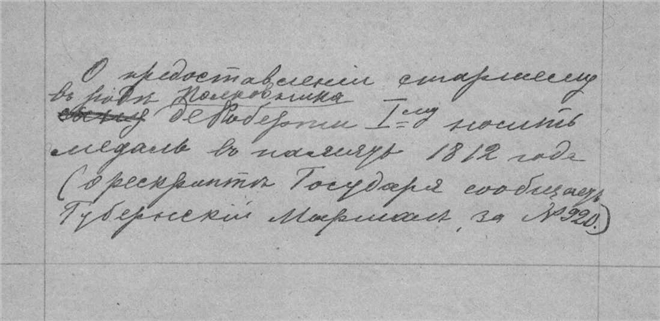 О предоставленіи старшему
въ родѣ Полковника
де Роберти I-му носить
медаль въ память 1812 года
(о рескриптѣ Государя сообщаетъ
Губернскій Маршалъ, за № 920.)